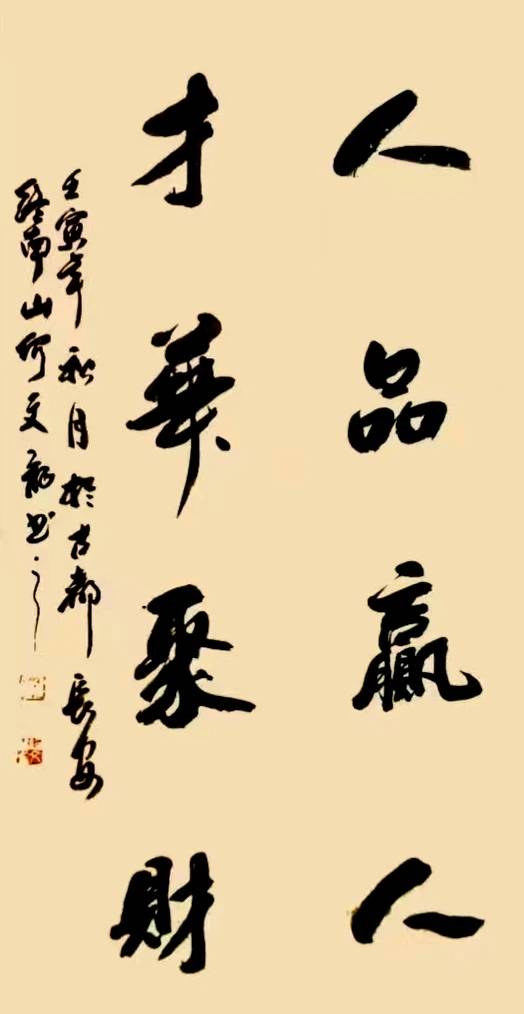 人品贏人
才華聚財
壬寅年秋月於古都長安
終南山何文龍書之